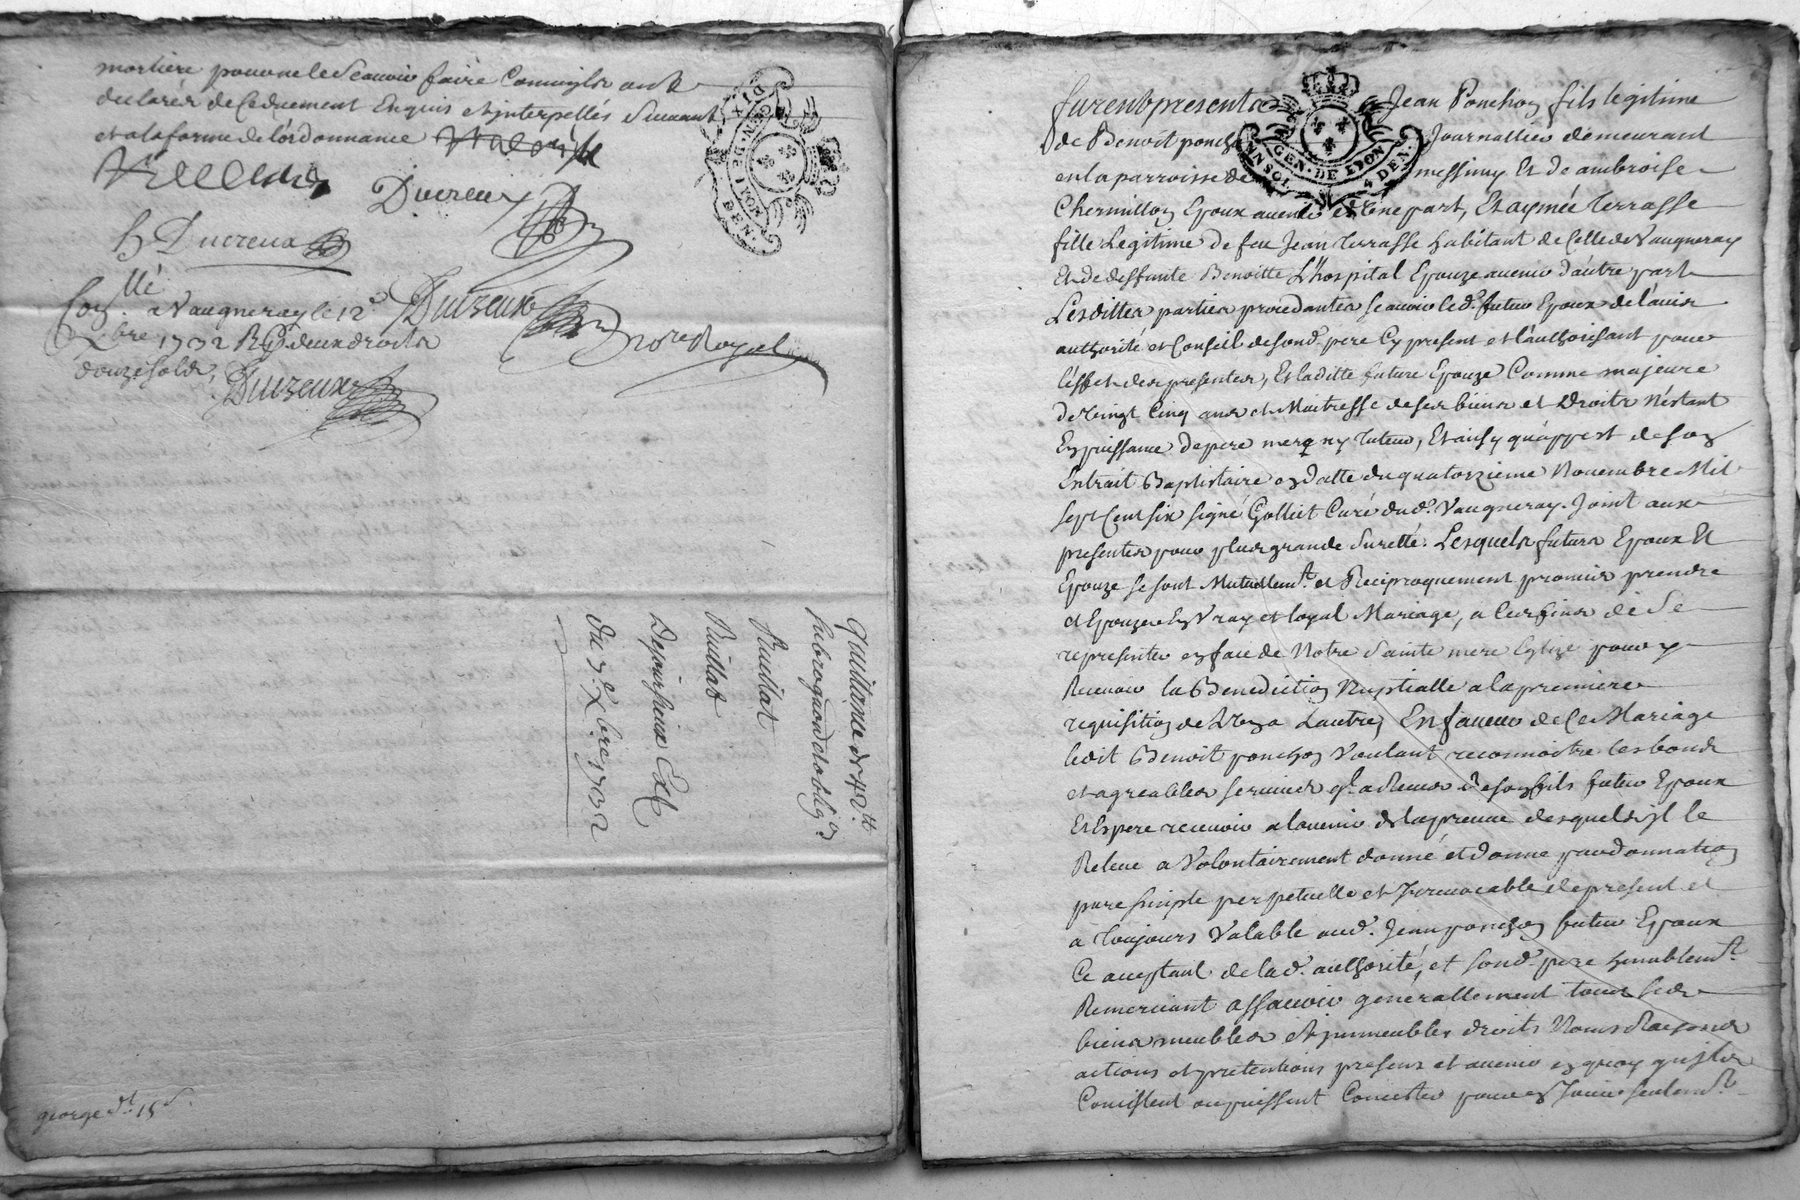 mortiere pour ne le Scauoir faire Comm'ils ont
declarés de Ce duement Enquis et interpellés Suiuant
et a la forme de l'ordonnance
Ducreux
h Ducreux
Collé. a Vaugneray le 12e
Xbre 1732 R. deux droits
douze Sols,
Ducreux
Ducreux
Not. re Royal
Quittance de 42 tt
subrogaon et oblig. on
Ruillat
Ruillat
Dejoursheux Ext.
du 7e. Xbre 1732
george dt. 15 s.
furent presents Jean Ponchon fils legitime
de Benoit ponchon Journallier demeurant
en la parroisse de messimy Et de ambroise
Chermillon Epoux auenir d'Une part, Et aymée Terrasse
fille Legitime de feu Jean Terrasse habitant de Celle de Vaugneray
Et de deffunte Benoitte L'hospital Epouze auenir d'autre part
Lesdittes parties procedantes Scauoir led. futur Epoux de l'auis
authorité et Conseil de sond. pere Cy present et l'authorisant pour
l'effet des presentes, Et laditte future Epouze Comme majeure
de Vingt Cinq ans et Maitresse de ses biens et Droits N'estant
En puissance de pere mere ny tuteur, Et ainsy qu'appert de son
Extrait Baptistaire en datte du quatorzieme Nouembre Mil
Sept Cent six signé Golliet Curé dud. Vaugneray. Joint aux
presentes pour plus grande Suretté. Lesquels futurs Epoux Et
Epouze se sont Mutuellemt. et Reciproquement promis prendre
et Epouzer En Vray et loyal Mariage, a Ces fins de Se
representer en face de Notre Sainte mere Eglize pour y
Receuoir la Benediction Nuptialle a la premiere
requisition de L'Un a L'autre, En faueur de Ce Mariage
ledit Benoit ponchon Voulant reconnoitre les bons
et agreables seruices ql. a Receus de son fils futur Epoux
Et Espere receuoir a l'auenir de la preuue desquels il le
Releue a Volontairement donné et donne par donnation
pure simple perpetuelle et Irreuocable de present et
a Toujours Valable aud. Jean ponchon futur Epoux
Ce acceptant de lad. authorité, et sond. pere humblemt.
Remerciant assauoir generallement tous ses
biens meubles et immeubles droits Noms Raisons
actions et pretentions presens et auenir en quoy qu'ils
Consistent ou puissent Consister pour en Jouir seulemt.